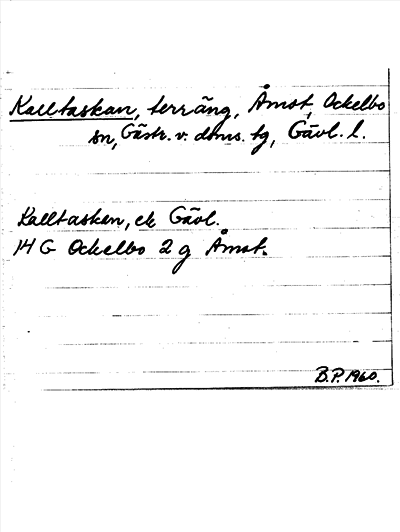 Kalltaskan, terräng, Åmot, Ockelbo
sn, Gästr. v. doms. tg, Gävl. l.
Kalltasken, ek Gävl.
14 G Ockelbo 2 g Åmot.
B.P. 1960.